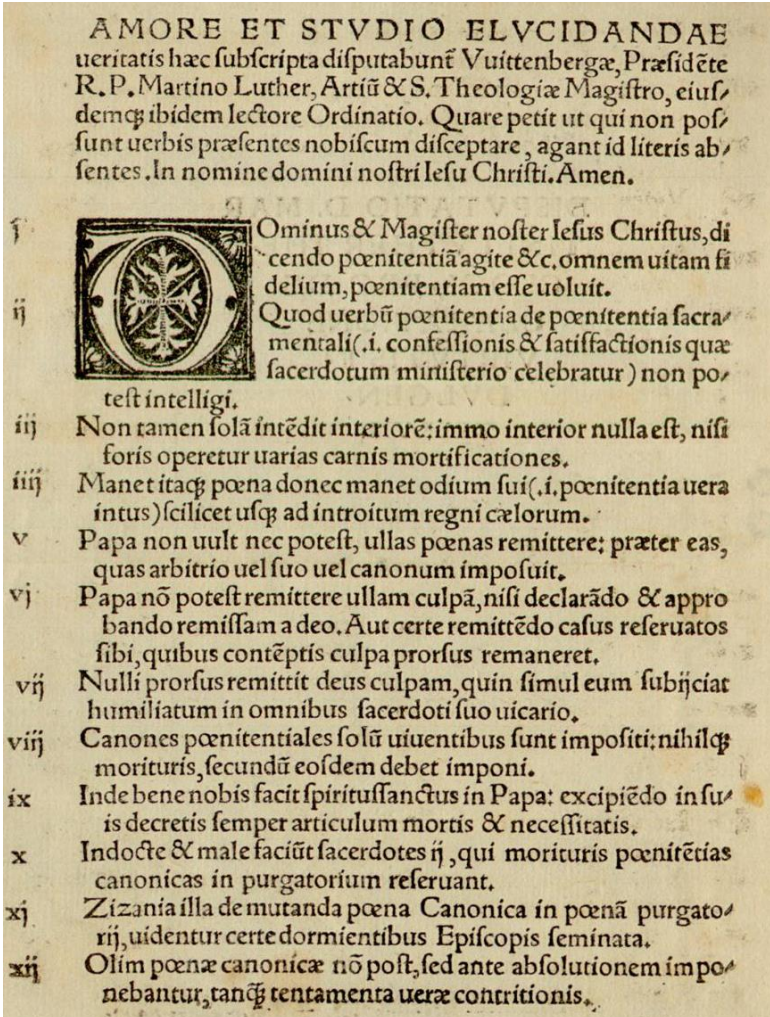 AMORE ET STVDIO ELVCIDANDAE
ueritatis hæc ſubſcripta diſputabunt̃ Vuittenbergæ, Præſidẽte
R. P. Martino Luther, Artiũ & S. Theologiæ Magiſtro, eiuſ⸗
demq; ibidem lectore Ordinatio. Quare petit ut qui non poſ⸗
ſunt uerbis præſentes nobiſcum diſceptare, agant id literis ab⸗
ſentes. In nomine domini noſtri Ieſu Chriſti. Amen.
j DOminus & Magiſter noſter Ieſus Chriſtus, di
cendo pœnitentiã agite &c. omnem uitam fi
delium, pœnitentiam eſſe uoluit.
ij Quod uerbũ pœnitentia de pœnitentia ſacra⸗
mentali (.i. confeſſionis & ſatiſfactionis quæ
ſacerdotum miniſterio celebratur) non po⸗
teſt intelligi.
iij Non tamen ſolã intẽdit interiorẽ: immo interior nulla eſt, niſi
foris operetur uarias carnis mortificationes.
iiij Manet itaq; pœna donec manet odium ſui (.i. pœnitentia uera
intus) ſcilicet uſq; ad introitum regni cælorum.
v Papa non uult nec poteſt, ullas pœnas remittere: præter eas,
quas arbitrio uel ſuo uel canonum impoſuit.
vj Papa nõ poteſt remittere ullam culpã, niſi declarãdo & appro
bando remiſſam a deo. Aut certe remittẽdo caſus reſeruatos
ſibi, quibus contẽptis culpa prorſus remaneret.
vij Nulli prorſus remittit deus culpam, quin ſimul eum ſubijciat
humiliatum in omnibus ſacerdoti ſuo uicario.
viij Canones pœnitentiales ſolũ uiuentibus ſunt impoſiti: nihilq;
morituris, ſecundũ eoſdem debet imponi.
ix Inde bene nobis facit ſpirituſſanctus in Papa: excipiẽdo in ſu⸗
is decretis ſemper articulum mortis & neceſſitatis.
x Indocte & male faciũt ſacerdotes ij, qui morituris pœnitẽtias
canonicas in purgatorium reſeruant.
xj Zizania illa de mutanda pœna Canonica in pœnã purgato⸗
rij, uidentur certe dormientibus Epiſcopis ſeminata.
xij Olim pœnæ canonicæ nõ poſt, ſed ante abſolutionem impo⸗
nebantur, tanq̃ tentamenta ueræ contritionis.